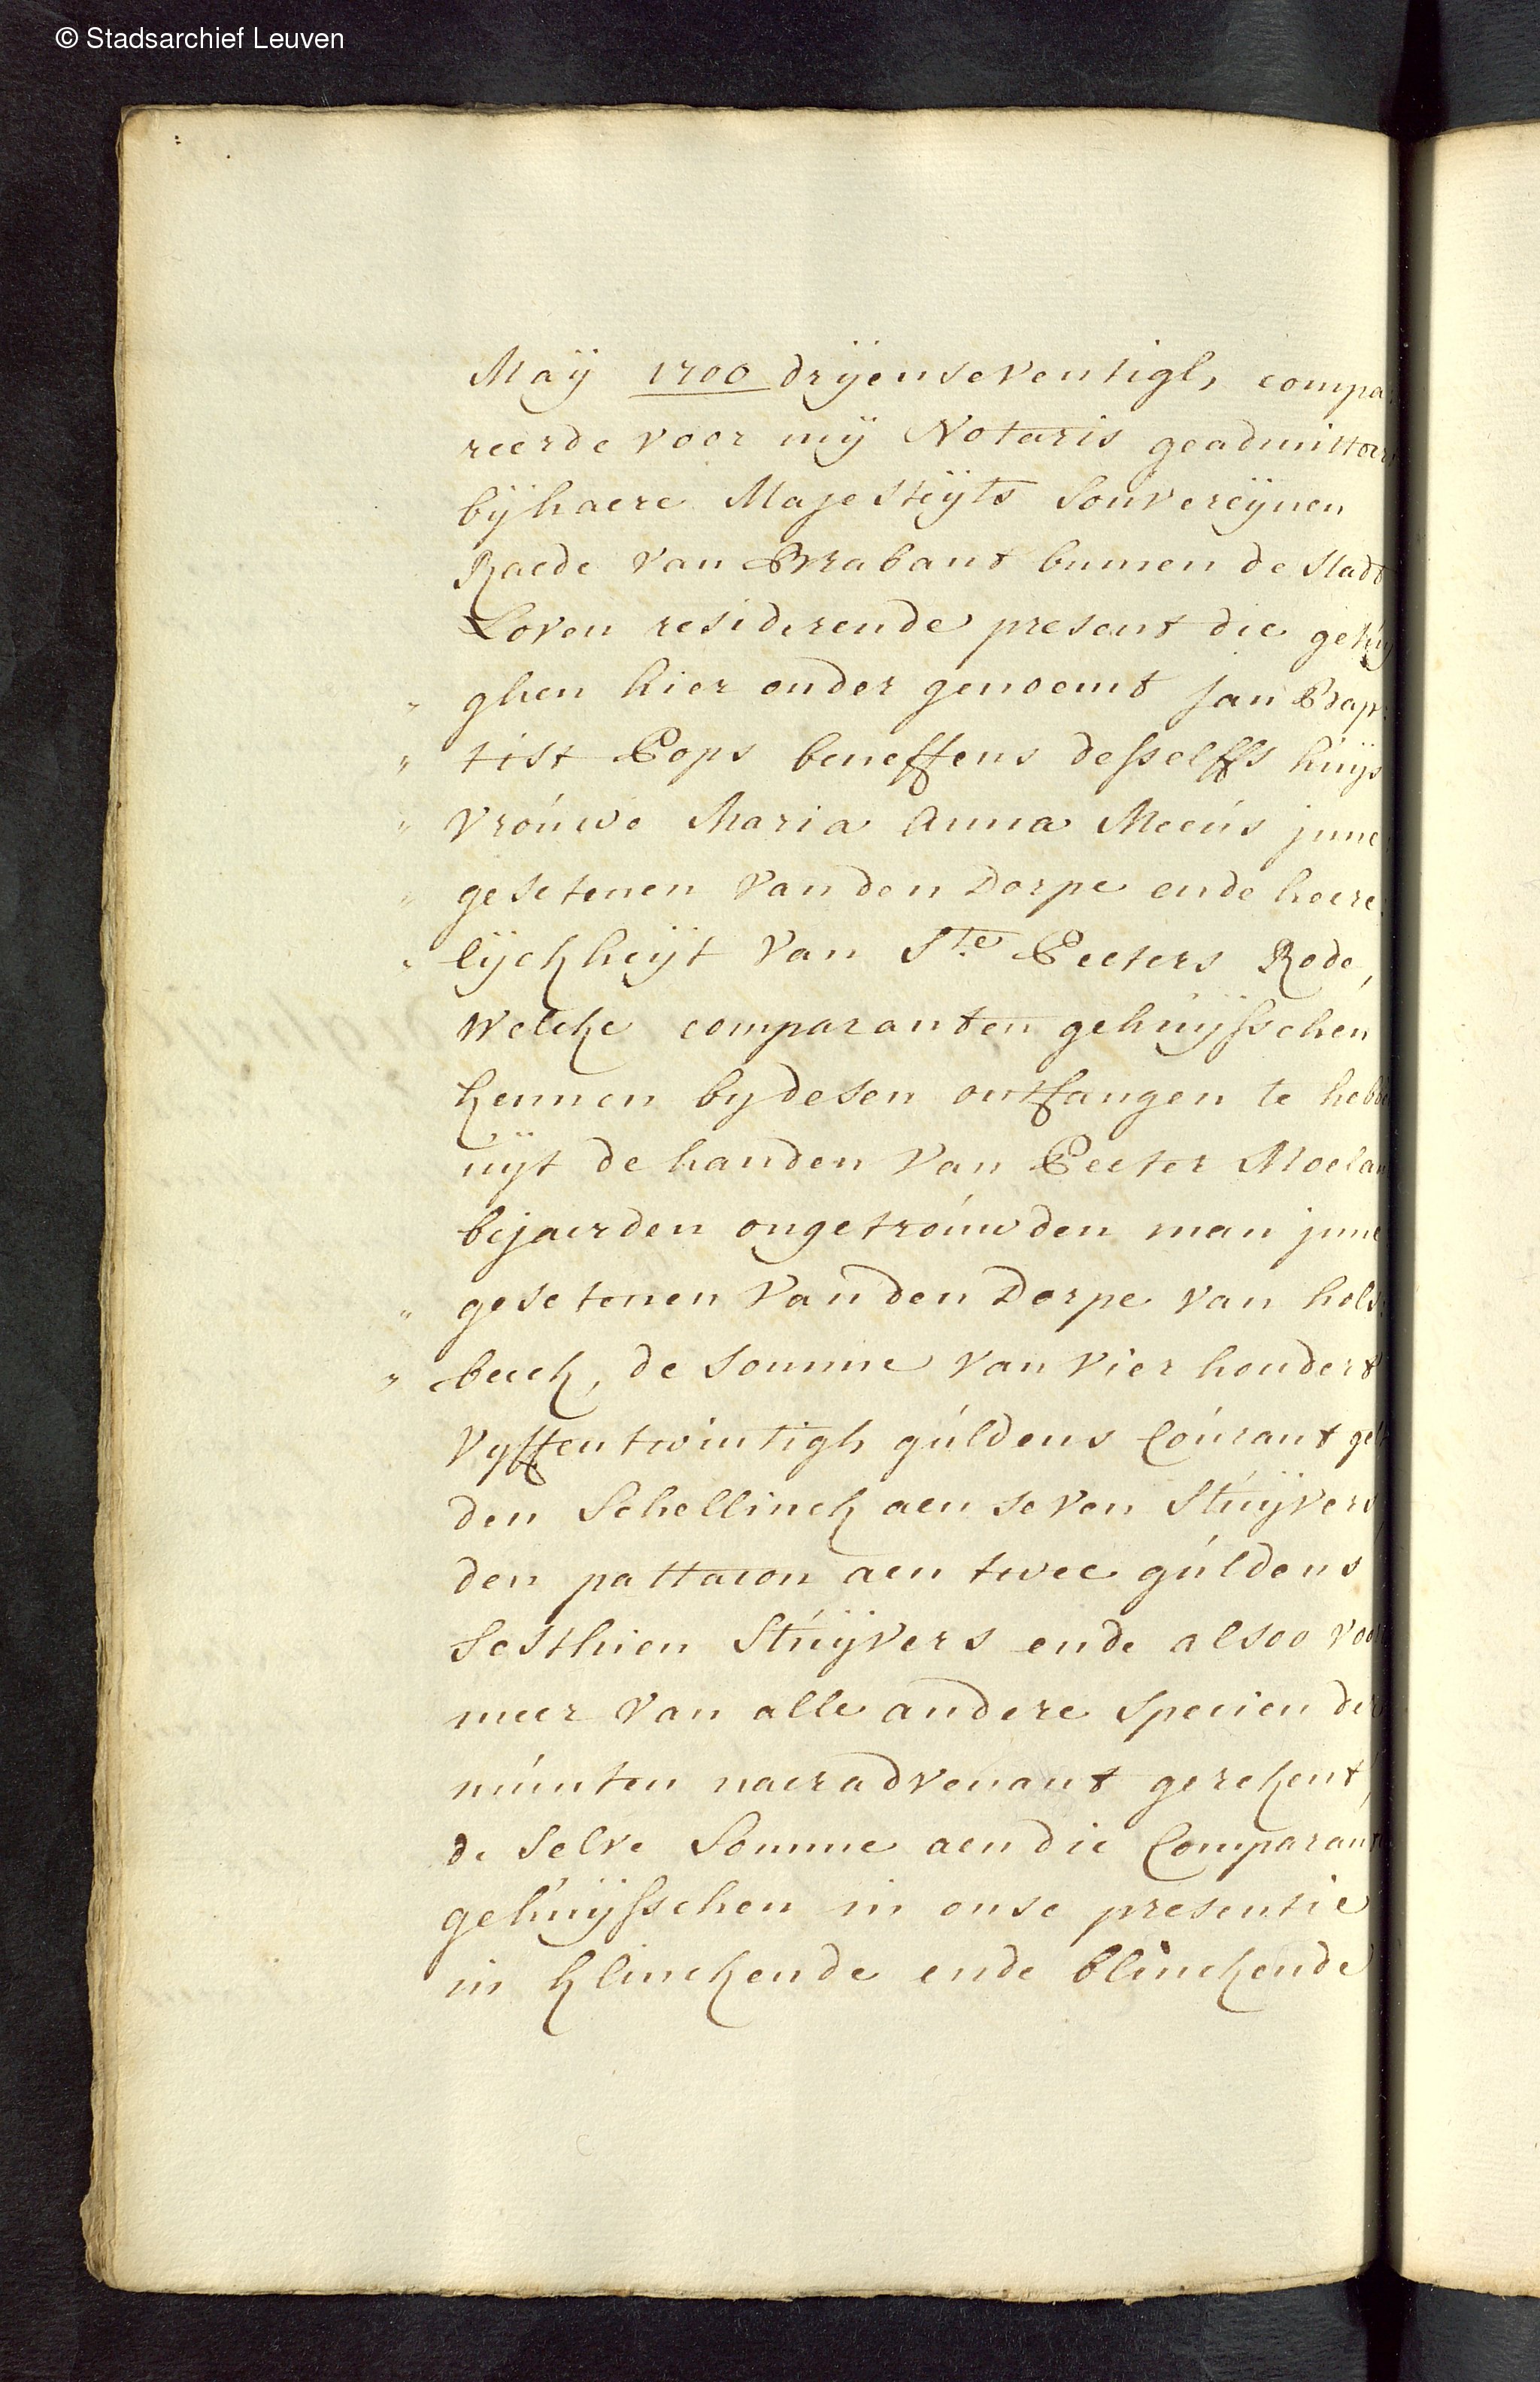 © Stadsarchief Leuven
Maÿ 1700 drÿenseventigh, compa
reerde voor mÿ Notaris geadmitteer
bÿ haere Majesteÿts Souvereÿnen
Raede van Brabant binnen de stadt
Loven residerende present die getuÿ
„ ghen hier onder genoemt Jan Bap:
„ tist Pops beneffens desselffs huÿs
„ vrouwe Maria Anna Meeus inne
„ gesetenen van den Dorpe ende heere
„ lÿckheÿt van Ste Peeters Rode,
welcke comparanten gehuÿsschen
kennen by desen ontfangen te hebbe
uÿt de handen van Peeter Moelan
bejaerden ongetrouwden man inne
„ gesetenen van den Dorpe van hols
„ beeck, de somme van vier hondert
vyffentwintigh guldens Courant gel
den Schellinck aen seven Stuÿvers
den pattacon aen twee guldens
Sesthien Stuÿvers ende alsoo voor
meer van alle andere specien der
munten naer advenant gerekent,
de selve Somme aen die Comparant
gehuÿsschen in onse presentie
in klinckende ende blinckende